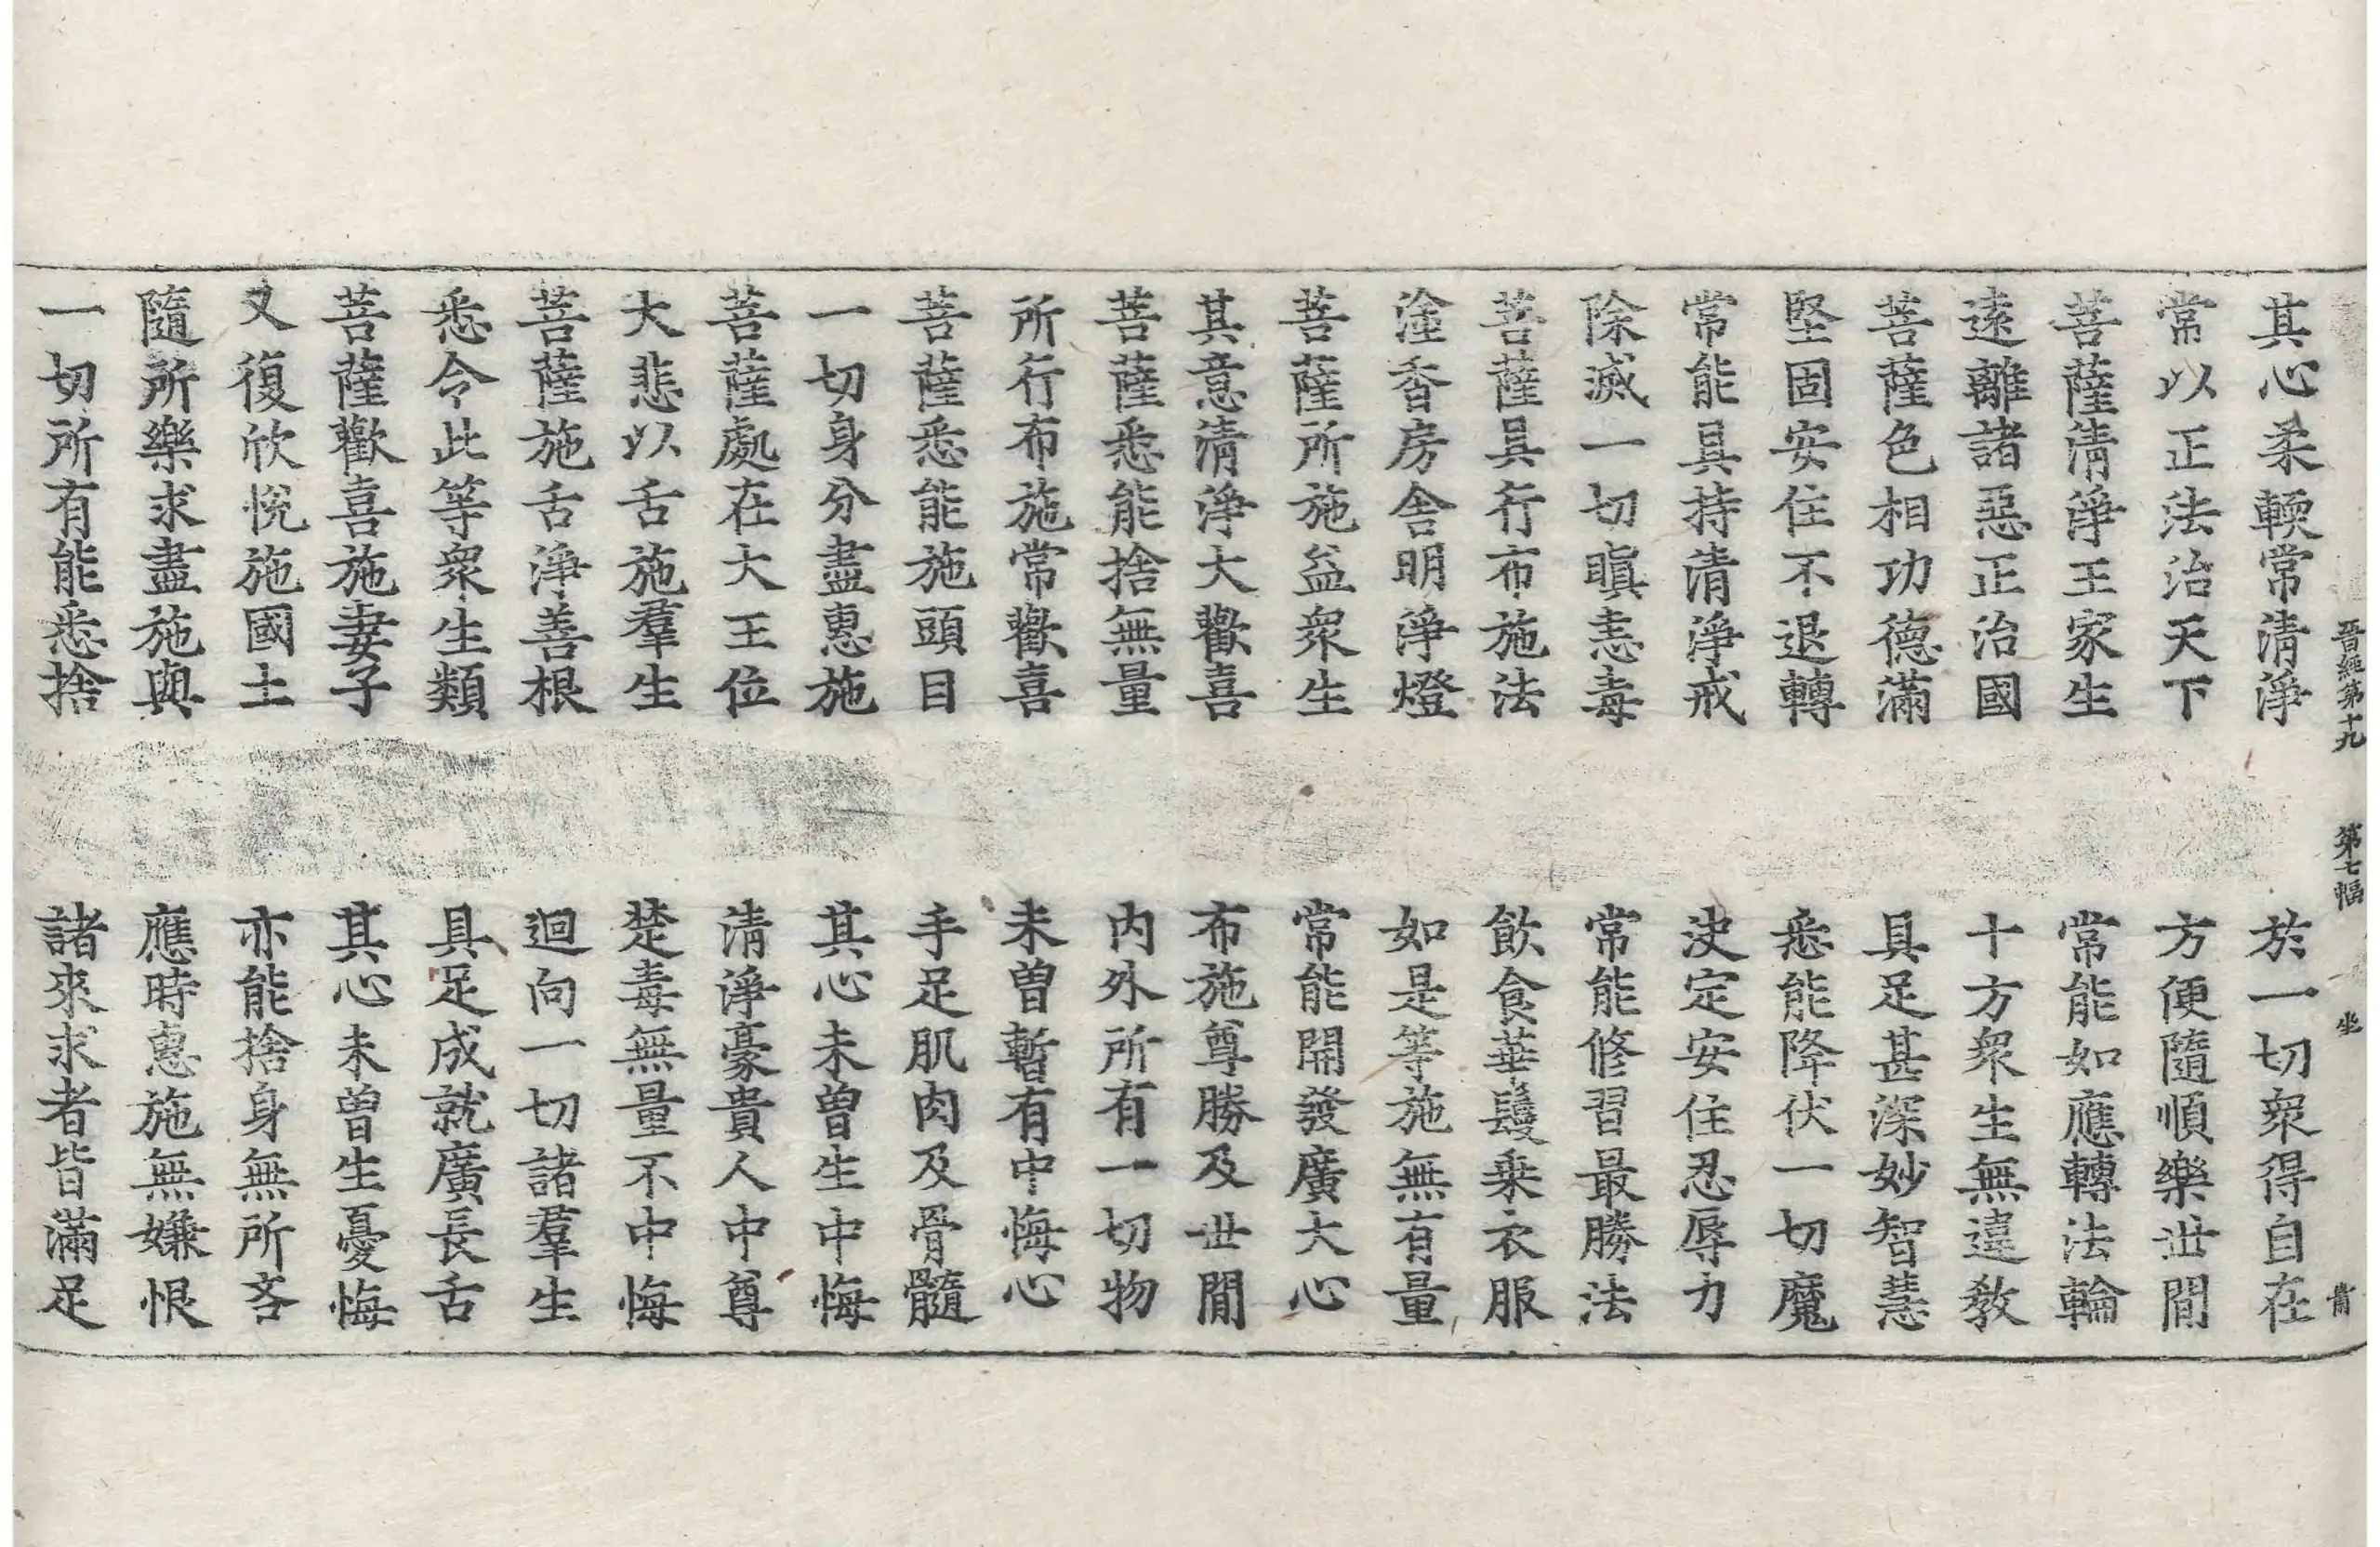 晉經第十九 第七幅 坐 青
其心柔輭常清淨 於一切衆得自在
常以正法治天下 方便隨順樂世間
菩薩清淨王家生 常能如應轉法輪
遠離諸惡正治國 十方衆生無違教
菩薩色相功德滿 具足甚深妙智慧
堅固安住不退轉 悉能降伏一切魔
常能具持清淨戒 決定安住忍辱力
除滅一切瞋恚毒 常能修習最勝法
菩薩具行布施法 飲食華鬘乗衣服
塗香房舍明淨燈 如是等施無有量
菩薩所施益衆生 常能開發廣大心
其意清淨大歡喜 布施尊勝及世間
菩薩悉能捨無量 内外所有一切物
所行布施常歡喜 未曾暫有中悔心
菩薩悉能施頭目 手足肌肉及骨髓
一切身分盡惠施 其心未曾生中悔
菩薩處在大王位 清淨豪貴人中尊
大悲以舌施羣生 楚毒無量不中悔
菩薩施舌淨善根 迴向一切諸羣生
悉令此等衆生類 具足成就廣長舌
菩薩歡喜施妻子 其心未曾生憂悔
又復欣悅施國土 亦能捨身無所吝
隨所樂求盡施與 應時惠施無嫌恨
一切所有能悉捨 諸來求者皆滿足